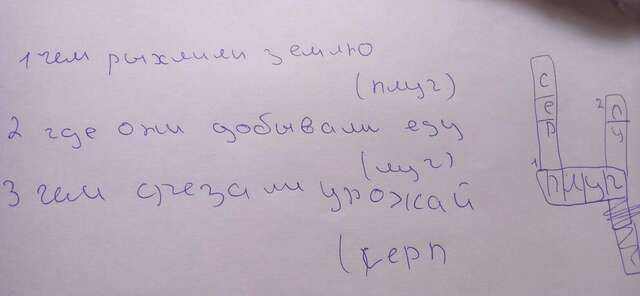 1 чем рыхлили землю
(плуг)
2 где они добывали еду
(луг)
3 чем срезали урожай
(серп
с
е
р
1
плуг
2 л
у